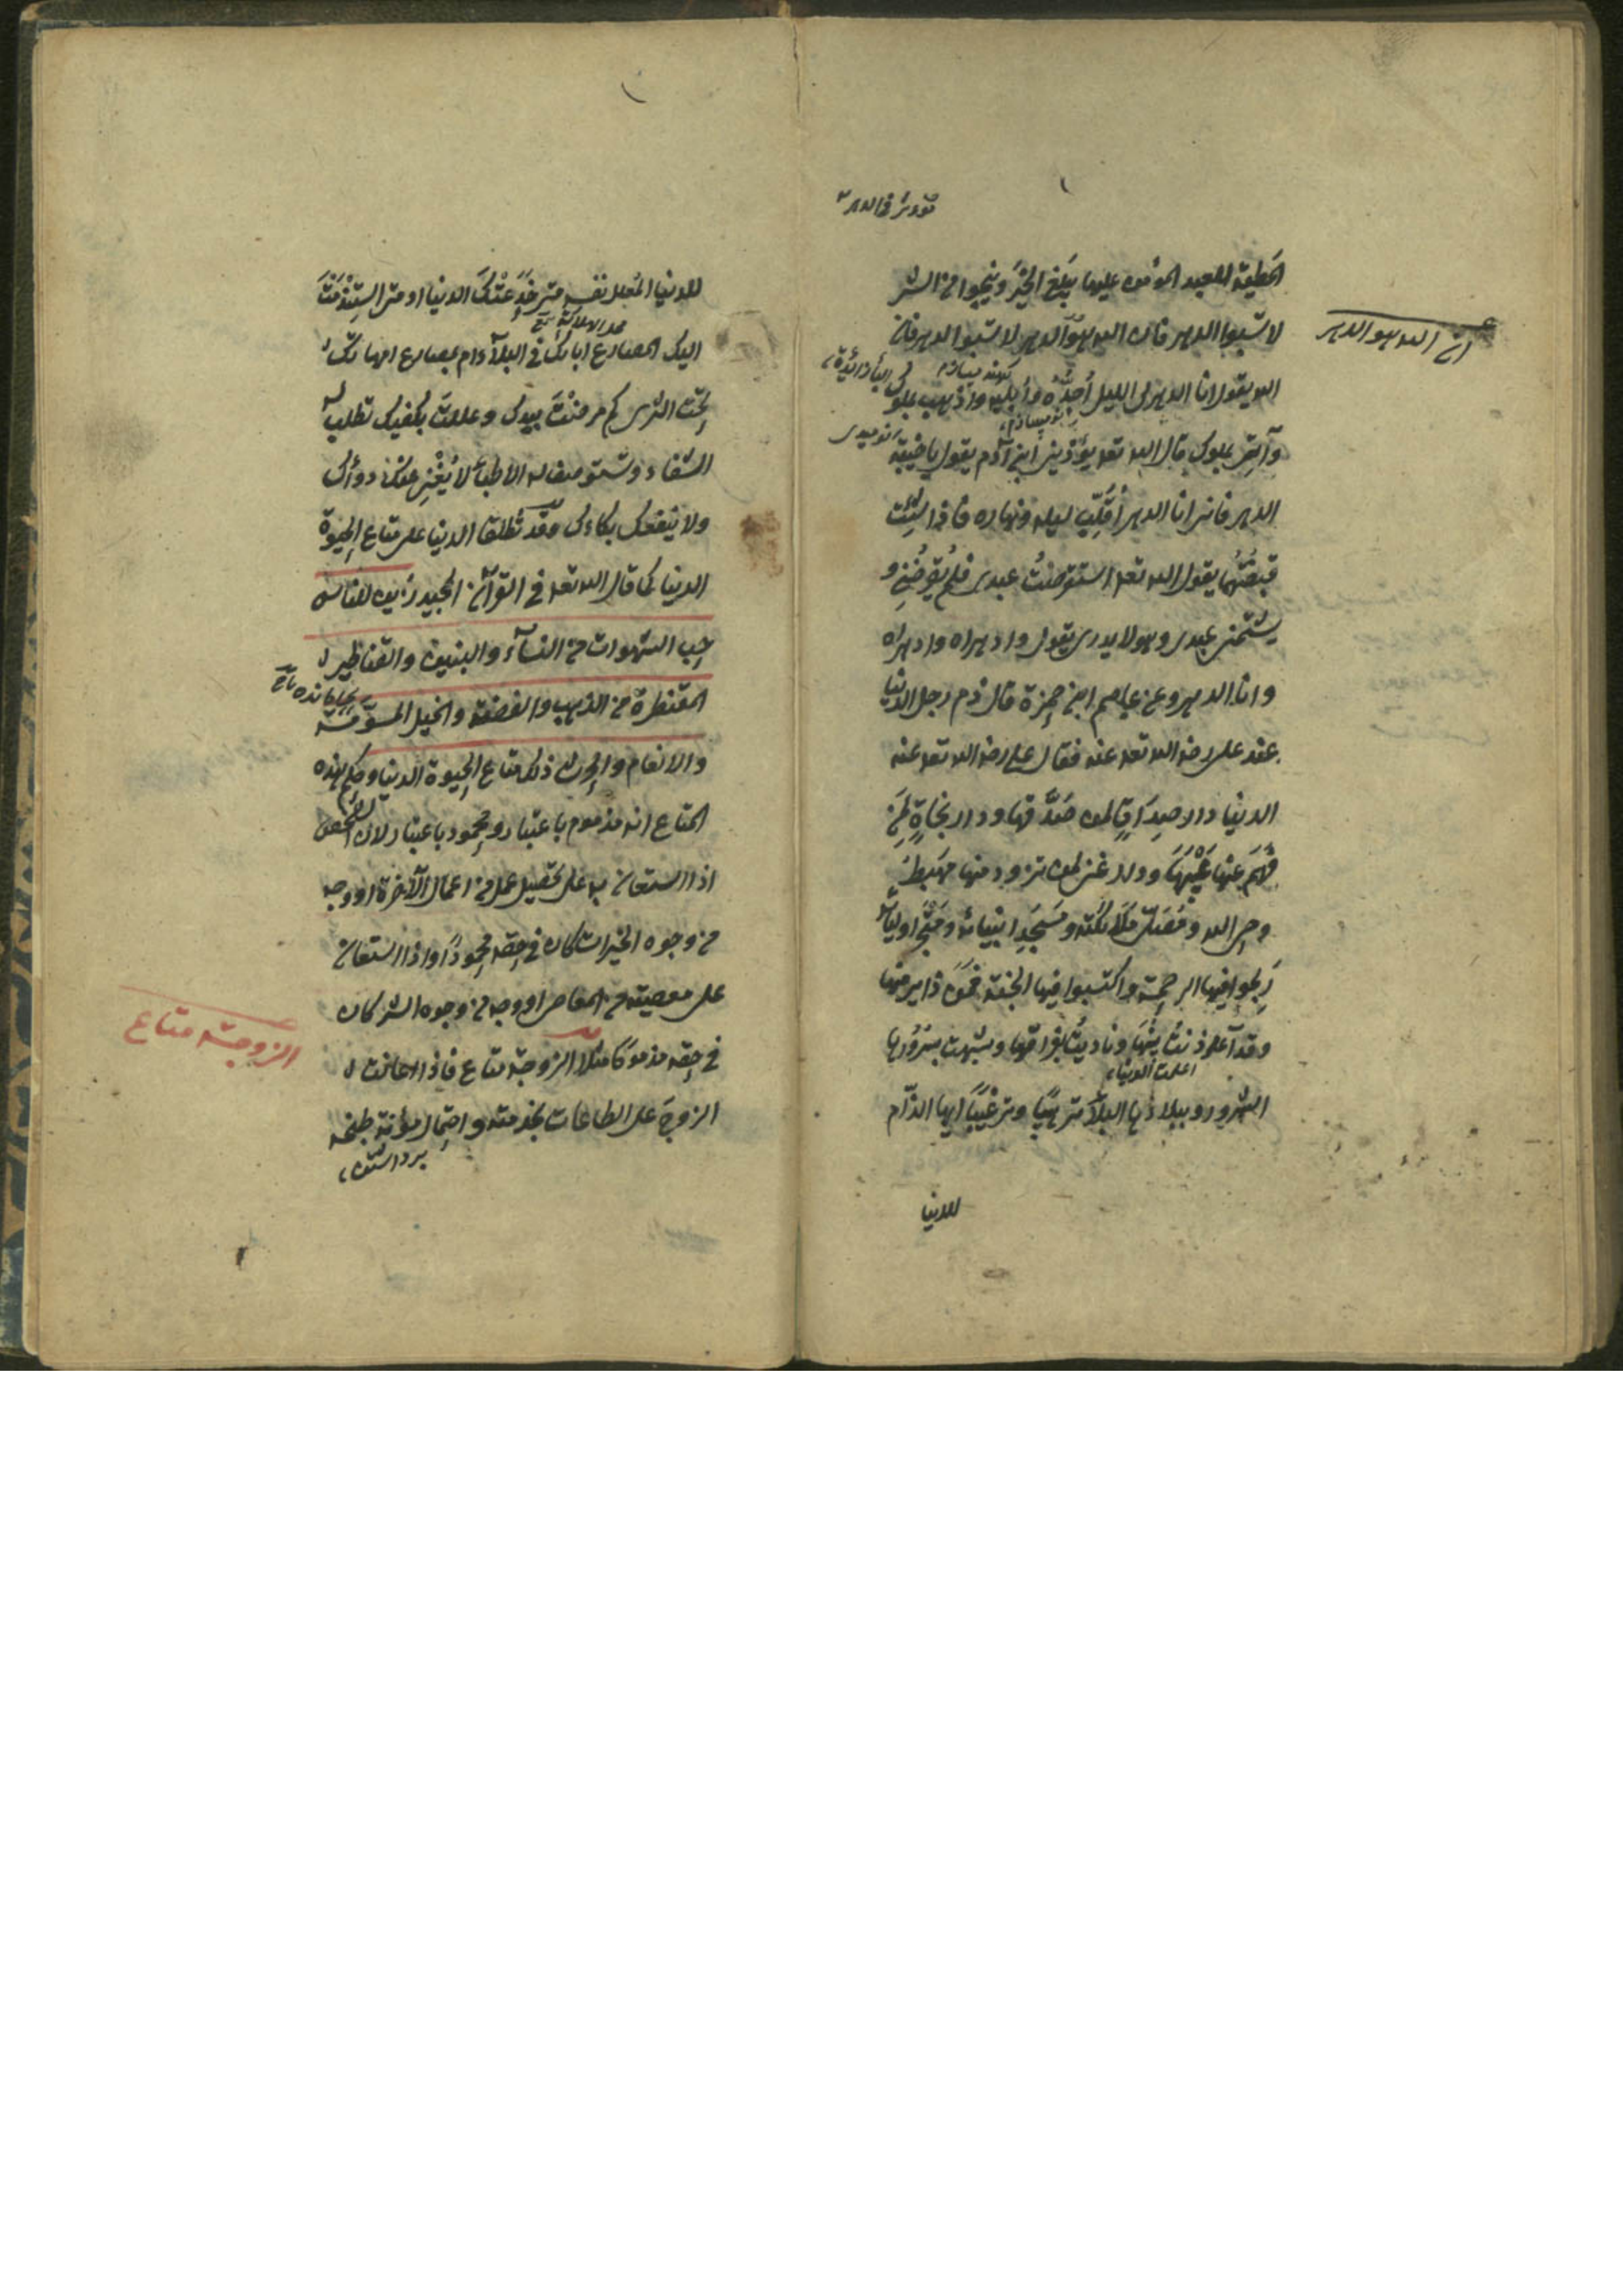 المطية للعبد المؤمن عليها يبلغ الخير وينجوا من الشر
لا تسبوا الدهر فان الله هو الدهر لا تسبوا الدهر فان
ان الله هو الدهر
الله يقول انا الدهر لى الليل أُجِدُّه وأُبليه واذهب بملوك
وآتى بملوك قال الله تعه يؤذينى ابن آدم يقول يا خيبة
نوميدى
الدهر فانى انا الدهر أُقَلِّب ليله ونهاره فاذا شئت
قبضتهما يقول الله تعه استقرضتُ عبدى فلم يقرضنى و
يشتمنى عبدى وهو لا يدرى يقول وادهراه وادهراه
وانا الدهر وعن عاصم ابن حمزة قال ذم رجل الدنيا
عند على رضى الله تعه عنه فقال على رضى الله تعه عنه
الدنيا دار صدق لمن صدقها ودار نجاة لمن
فهم عنها ودار غنى لمن تزود منها مهبط
وحى الله ومصلى ملائكته ومسجد انبيائه ومتجر اوليائه
ربحوا فيها الرحمة واكتسبوا فيها الجنة فمن ذا يذمها
وقد آذنت ببينها ونادت بفراقها وشبهت بسرورها
السرور وببلائها البلاء ترهيبًا وترغيبًا ايها الذام
للدنيا
للدنيا المعلل نفسه متى خدعتك الدنيا او متى استذمت
اليك أبمصارع ابائك فى البلاء ام بمصارع امهاتك
تحت الثرى كم مرضت بيدك وعللت بكفيك تطلب
الشفاء وتستوصف له الاطباء لا يُغْنِى عنك دواؤك
ولا ينفعك بكاءك وقد تُطلق الدنيا على متاع الحيوة
الدنيا كما قال الله تعه فى القرآن المجيد زُين للناس
حب الشهوات من النسآء والبنين والقناطير
المقنطرة من الذهب والفضة والخيل المسوّمة
والانعام والحرث ذلك متاع الحيوة الدنيا وحكم هذه
المتاع انه مذموم باعتبار ومحمود باعتبار لان الشخص
اذا استعان به على تحصيل عمل من اعمال الآخرة او وجه
من وجوه الخيرات كان فى حقه محمودًا واذا استعان
على معصية من المعاصى او وجه من وجوه الشر كان
فى حقه مذمومًا مثلا الزوجة متاع فاذا اعانت
الزوجة متاع
الزوج على الطاعات بخدمته واحتمال مؤنة طبخه
برداشتن